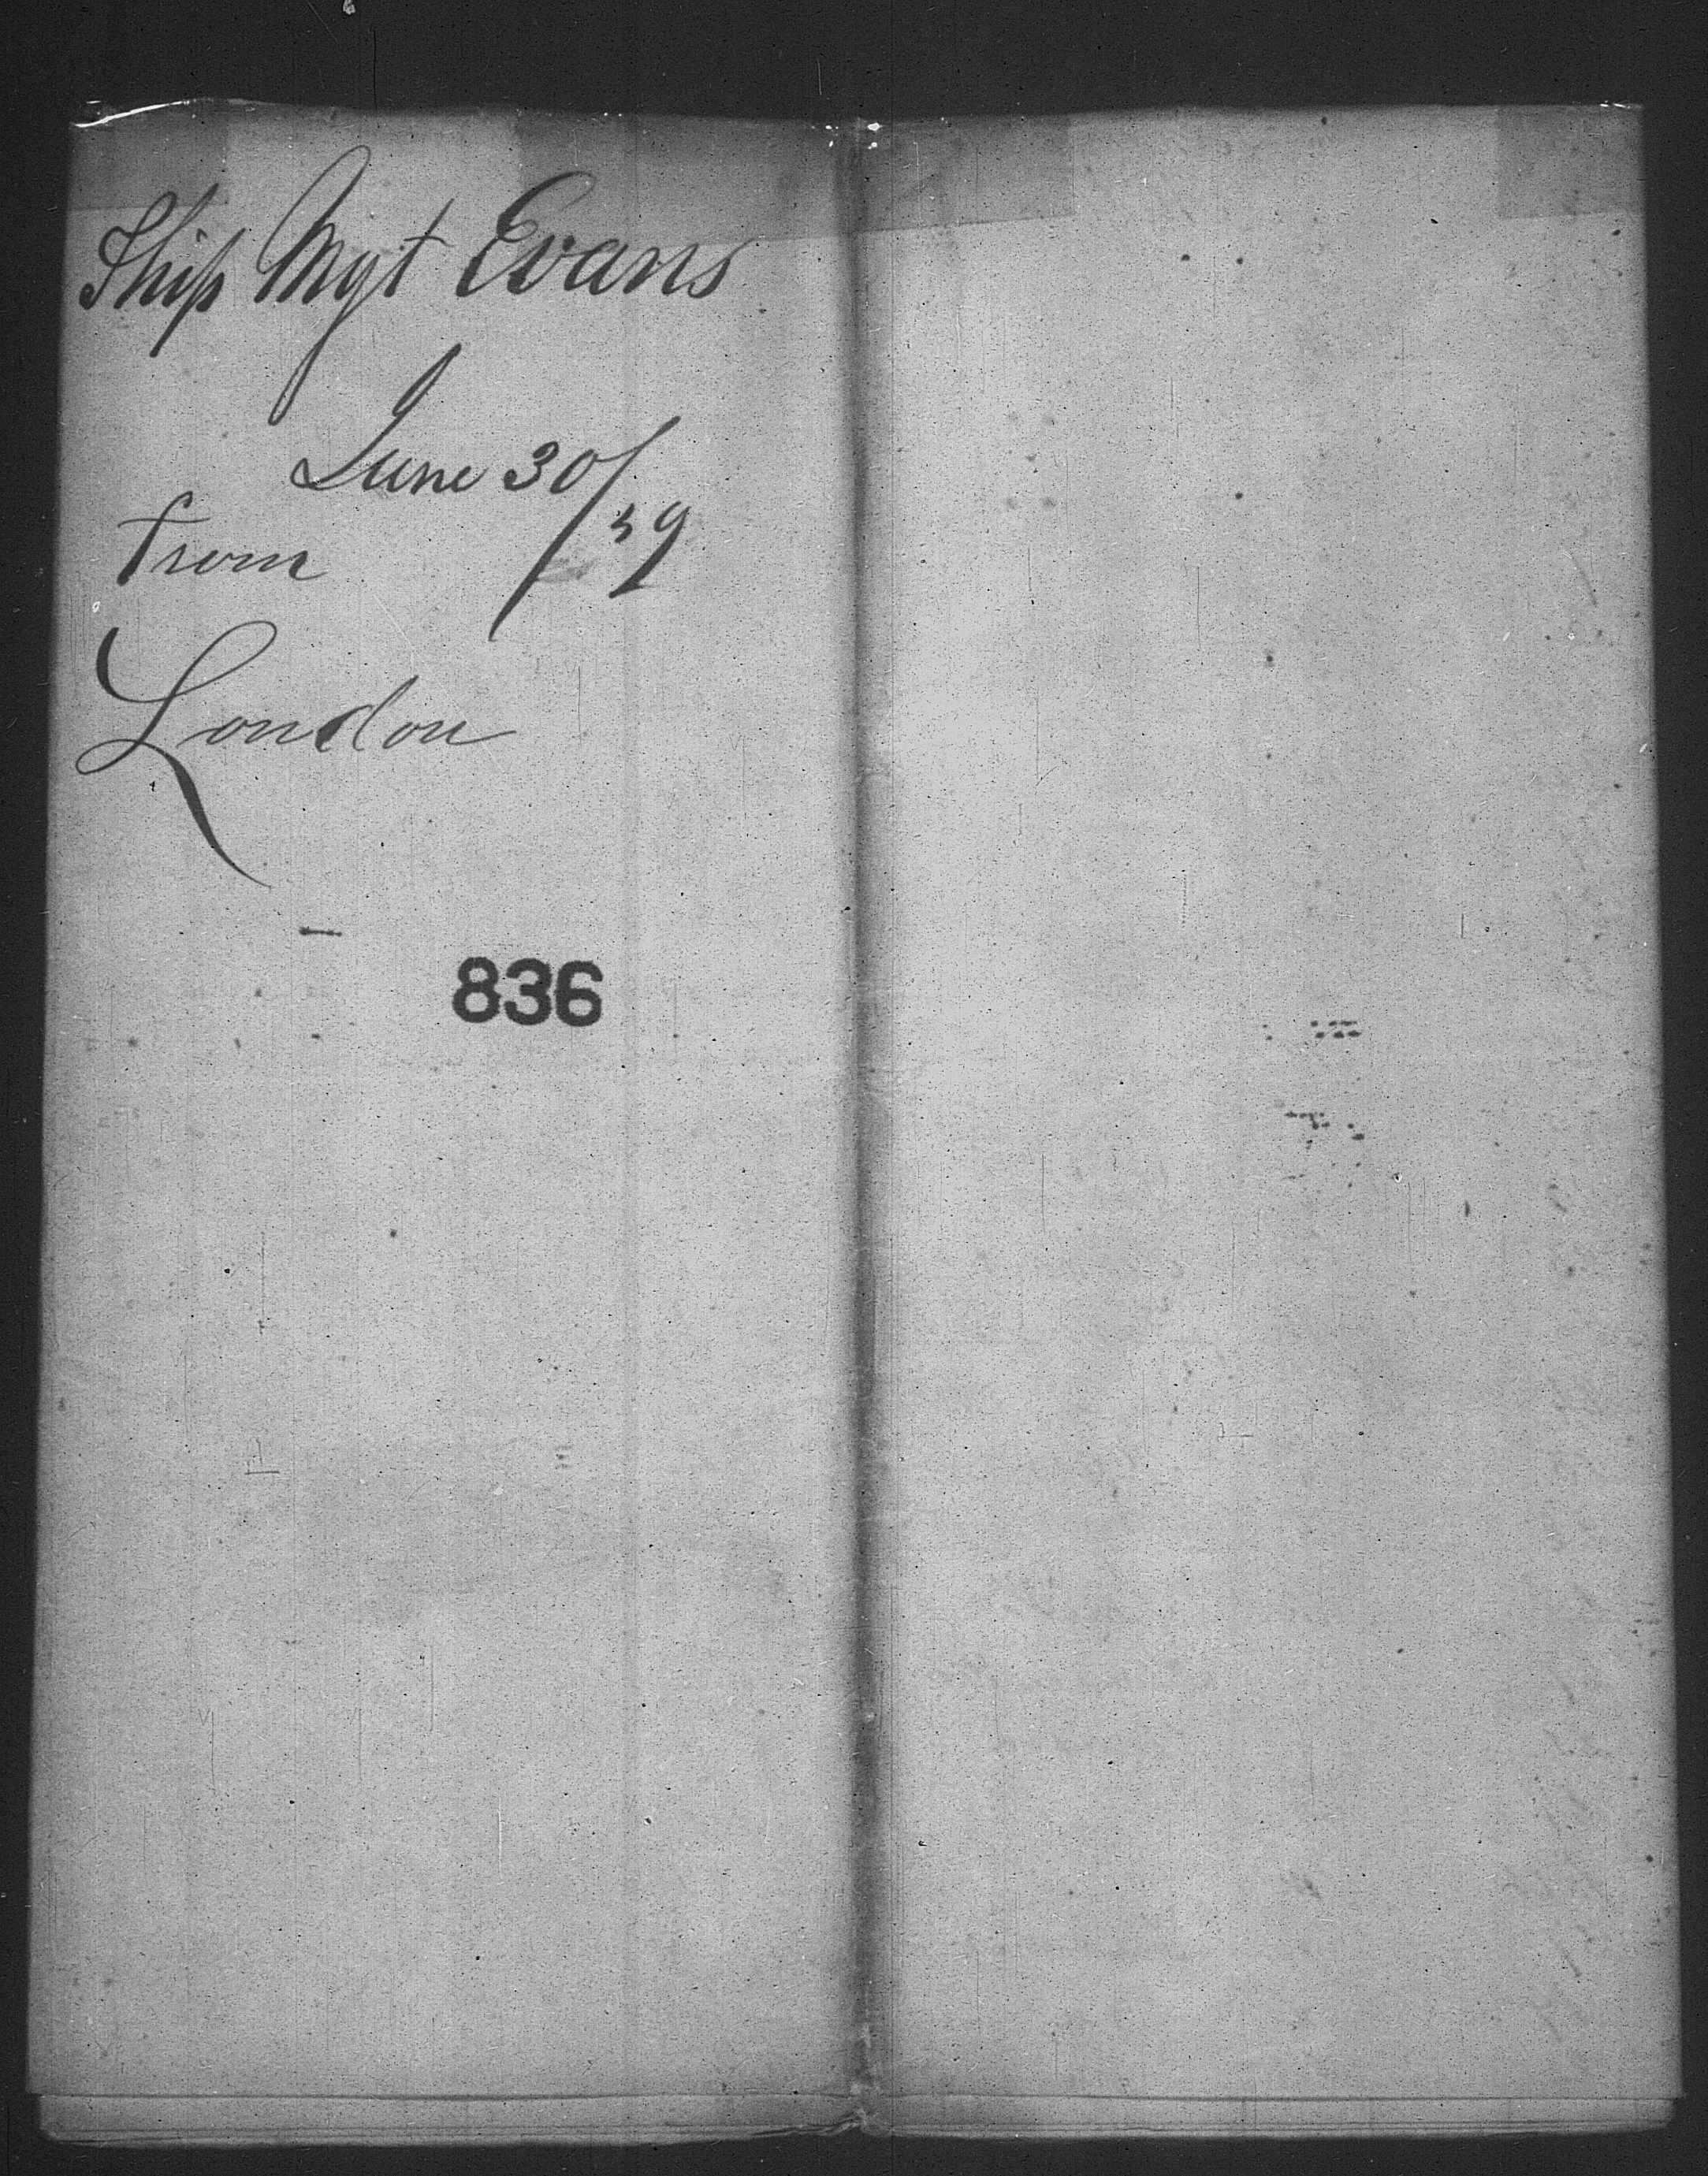 Ship Mgt Evans
June 30/59
from
London
836